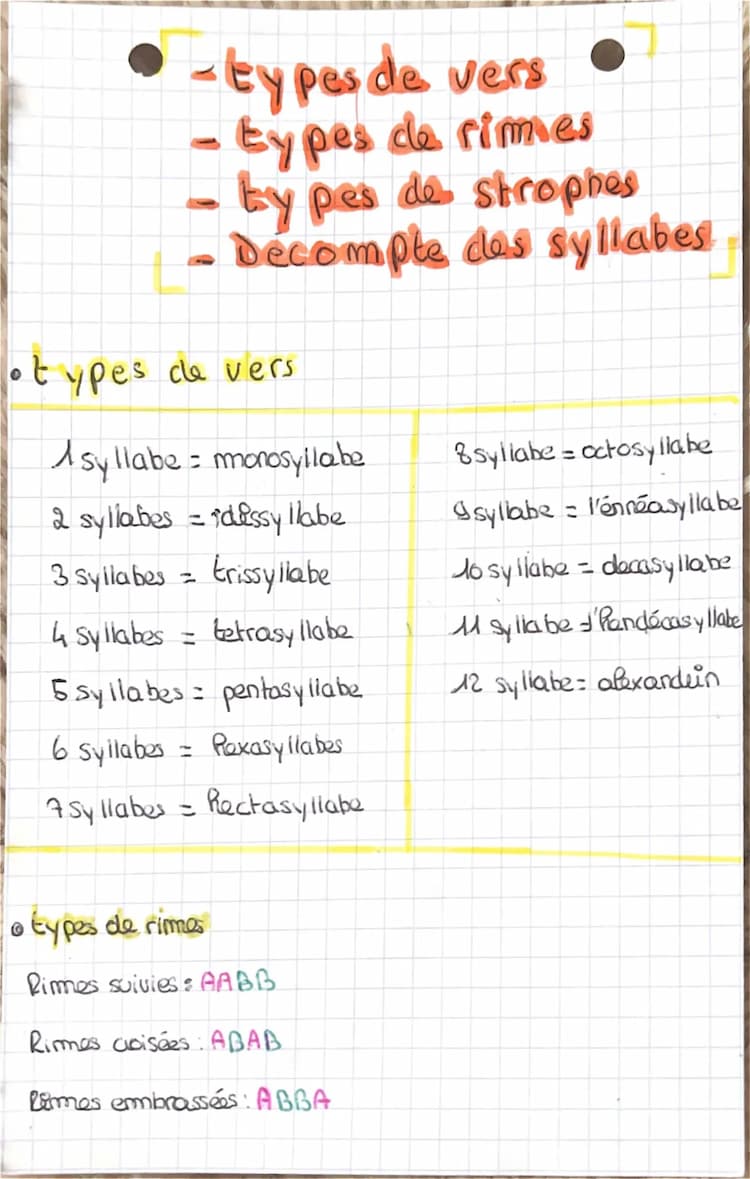 - types de vers
- types de rimes
- types de strophes
- Décompte des syllabes
• types de vers
1 syllabe = monosyllabe
2 syllabes = dissyllabe
3 syllabes = trissyllabe
4 syllabes = tetrasyllabe
5 syllabes = pentasyllabe
6 syllabes = hexasyllabes
7 syllabes = hectasyllabe
8 syllabe = octosyllabe
9 syllabe = l'énnéasyllabe
10 syllabe = decasyllabe
11 syllabe = l'handécasyllabe
12 syllabe = alexandrin
• types de rimes
Rimes suivies : AABB
Rimes croisées : ABAB
Rimes embrassées : ABBA